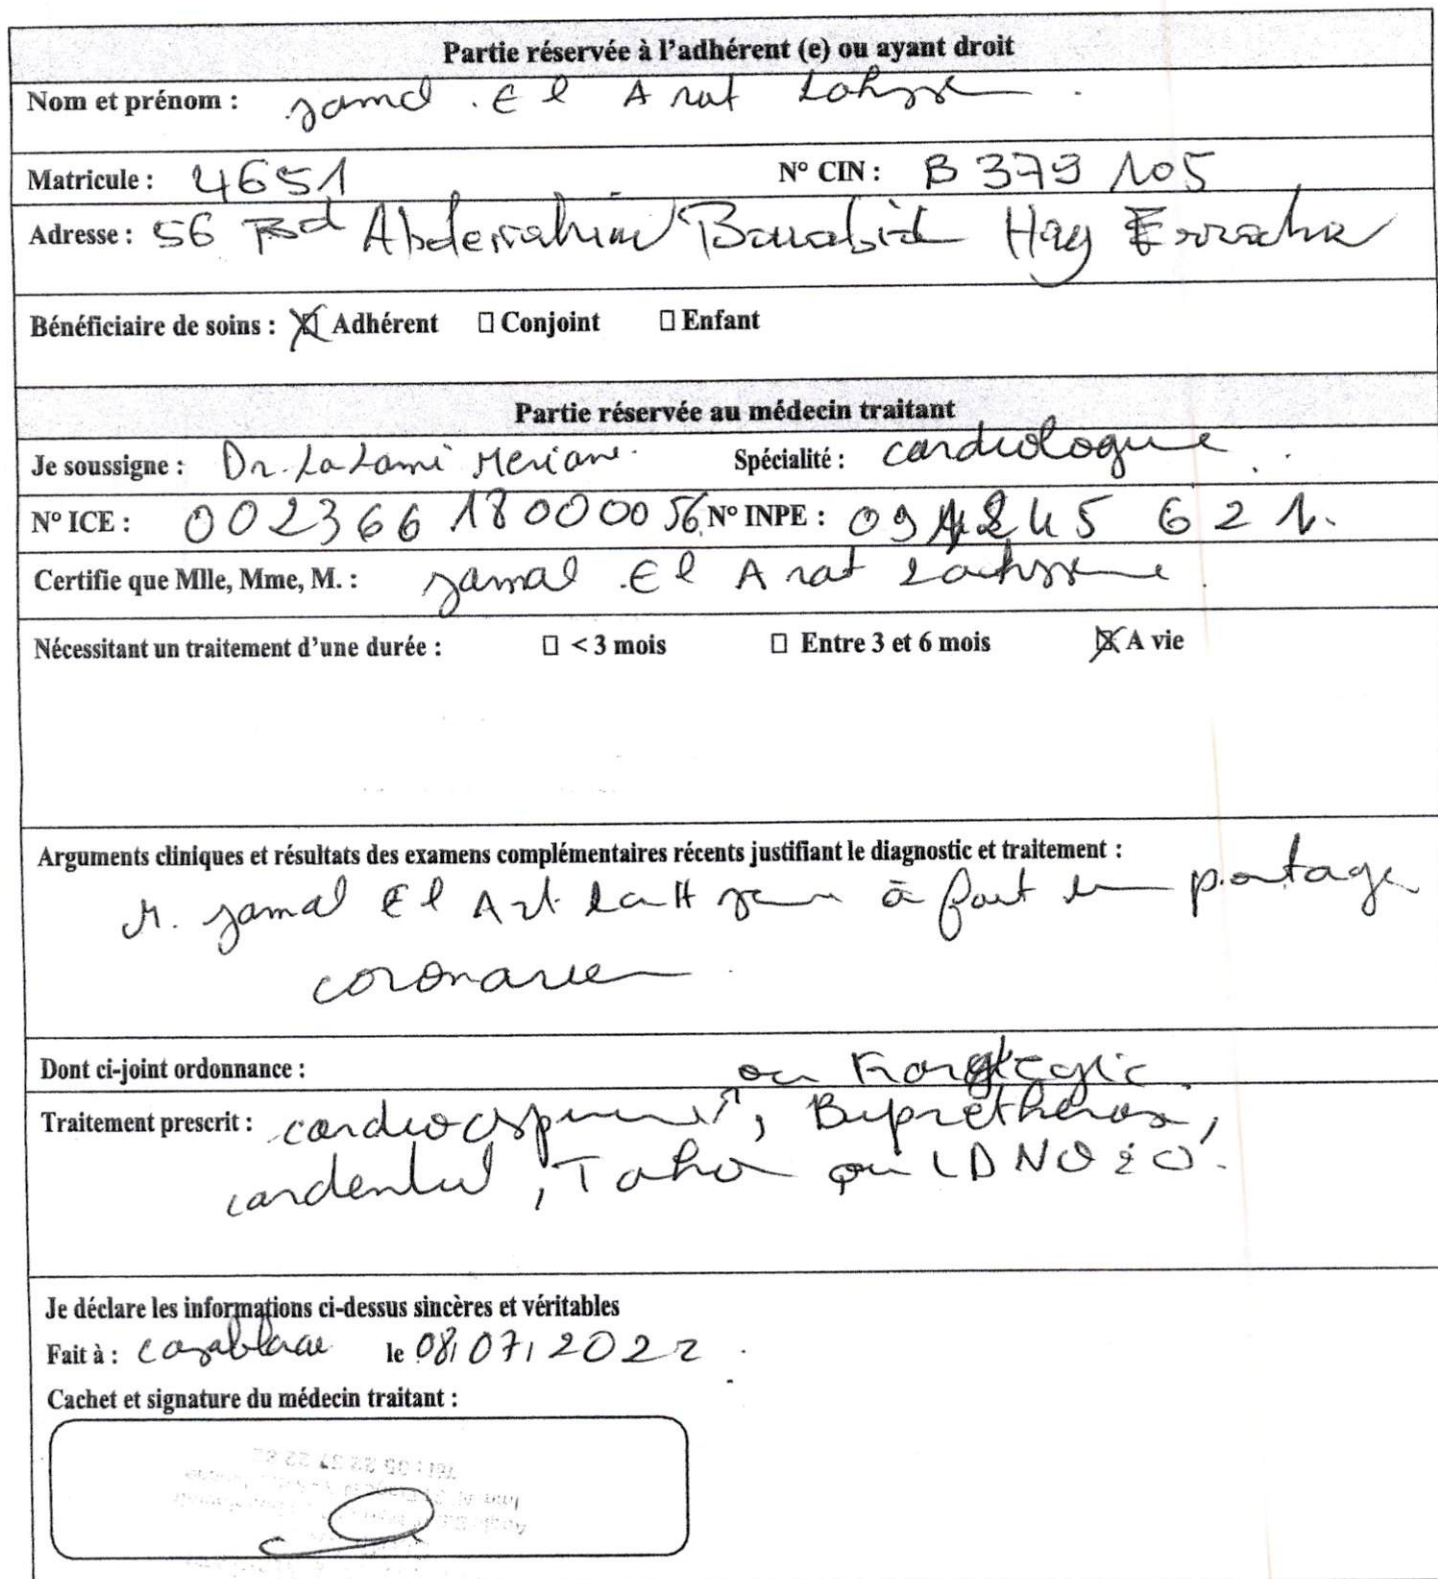 Partie réservée à l'adhérent (e) ou ayant droit
Nom et prénom : Jamal El A rat Lahssen
Matricule : 4651 N° CIN : B 379 105
Adresse : 56 Bd Abderrahim Bouabid Hay Erracha
Bénéficiaire de soins : ☒ Adhérent ☐ Conjoint ☐ Enfant
Partie réservée au médecin traitant
Je soussigne : Dr. Lalami Meriane. Spécialité : cardiologue
N° ICE : 002366180000056 N° INPE :
Certifie que Mlle, Mme, M. : Jamal El A rat
Nécessitant un traitement d'une durée : ☐ < 3 mois ☐ Entre 3 et 6 mois ☒ A vie
Arguments cliniques et résultats des examens complémentaires récents justifiant le diagnostic et traitement :
M. Jamal El à fait un pontage
coronarien
Dont ci-joint ordonnance :
ou
Traitement prescrit : cardioaspirine,
Tahor ou LDNOR
Je déclare les informations ci-dessus sincères et véritables
Fait à : casablanca le 08/07/2022
Cachet et signature du médecin traitant :